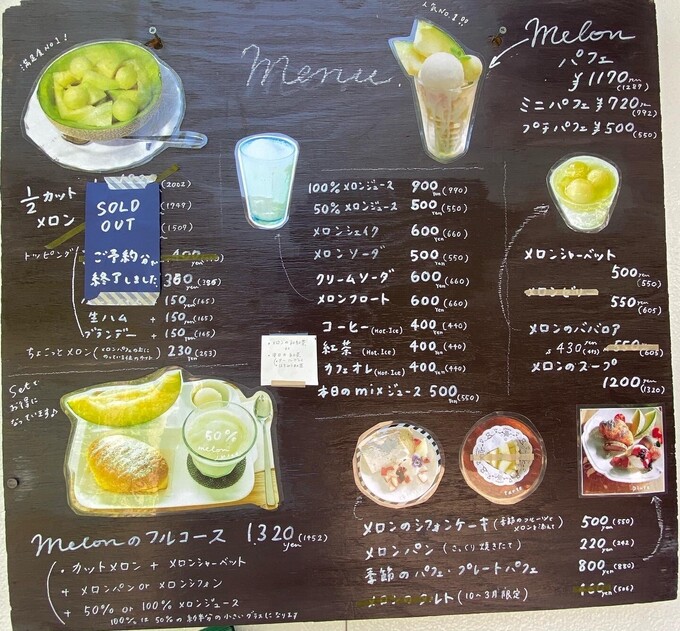 満足度No.1!
Menu.
人気No.1!!
Melon
パフェ
¥1170yen
(1287)
ミニパフェ ¥720yen
(792)
プチパフェ ¥500
(550)
1/2 カット
メロン
(2002)
(1749)
(1509)
SOLD
OUT
ご予約分で
終了しました
トッピング
400
350 (385)
150yen (165)
生ハム + 150yen (165)
ブランデー + 150yen (165)
ちょこっとメロン 230yen (253)
100% メロンジュース 900yen (990)
50% メロンジュース 500yen (550)
メロンシェイク 600yen (660)
メロンソーダ 500yen (550)
クリームソーダ 600yen (660)
メロンフロート 600yen (660)
コーヒー (Hot.Ice) 400yen (440)
紅茶 (Hot.Ice) 400yen (440)
カフェオレ (Hot.Ice) 400yen (440)
本日のmixジュース 500yen (550)
メロンシャーベット
500yen
(550)
550yen
(605)
メロンのババロア
430yen 550yen
(605)
メロンのスープ
1200yen (1320)
Setで
お得に
なっています♪
50%
melon
Melonのフルコース 1,320yen (1452)
・カットメロン + メロンシャーベット
+ メロンパン or メロンシフォン
+ 50% or 100% メロンジュース
100%は50%の約半分の小さいグラスになります
メロンのシフォンケーキ (季節のフルーツと 500yen (550)
メロンパン (さっくり焼きたて) 220yen (242)
季節のパフェ・プレートパフェ 800yen (880)
メロンのタルト (10〜3月限定)